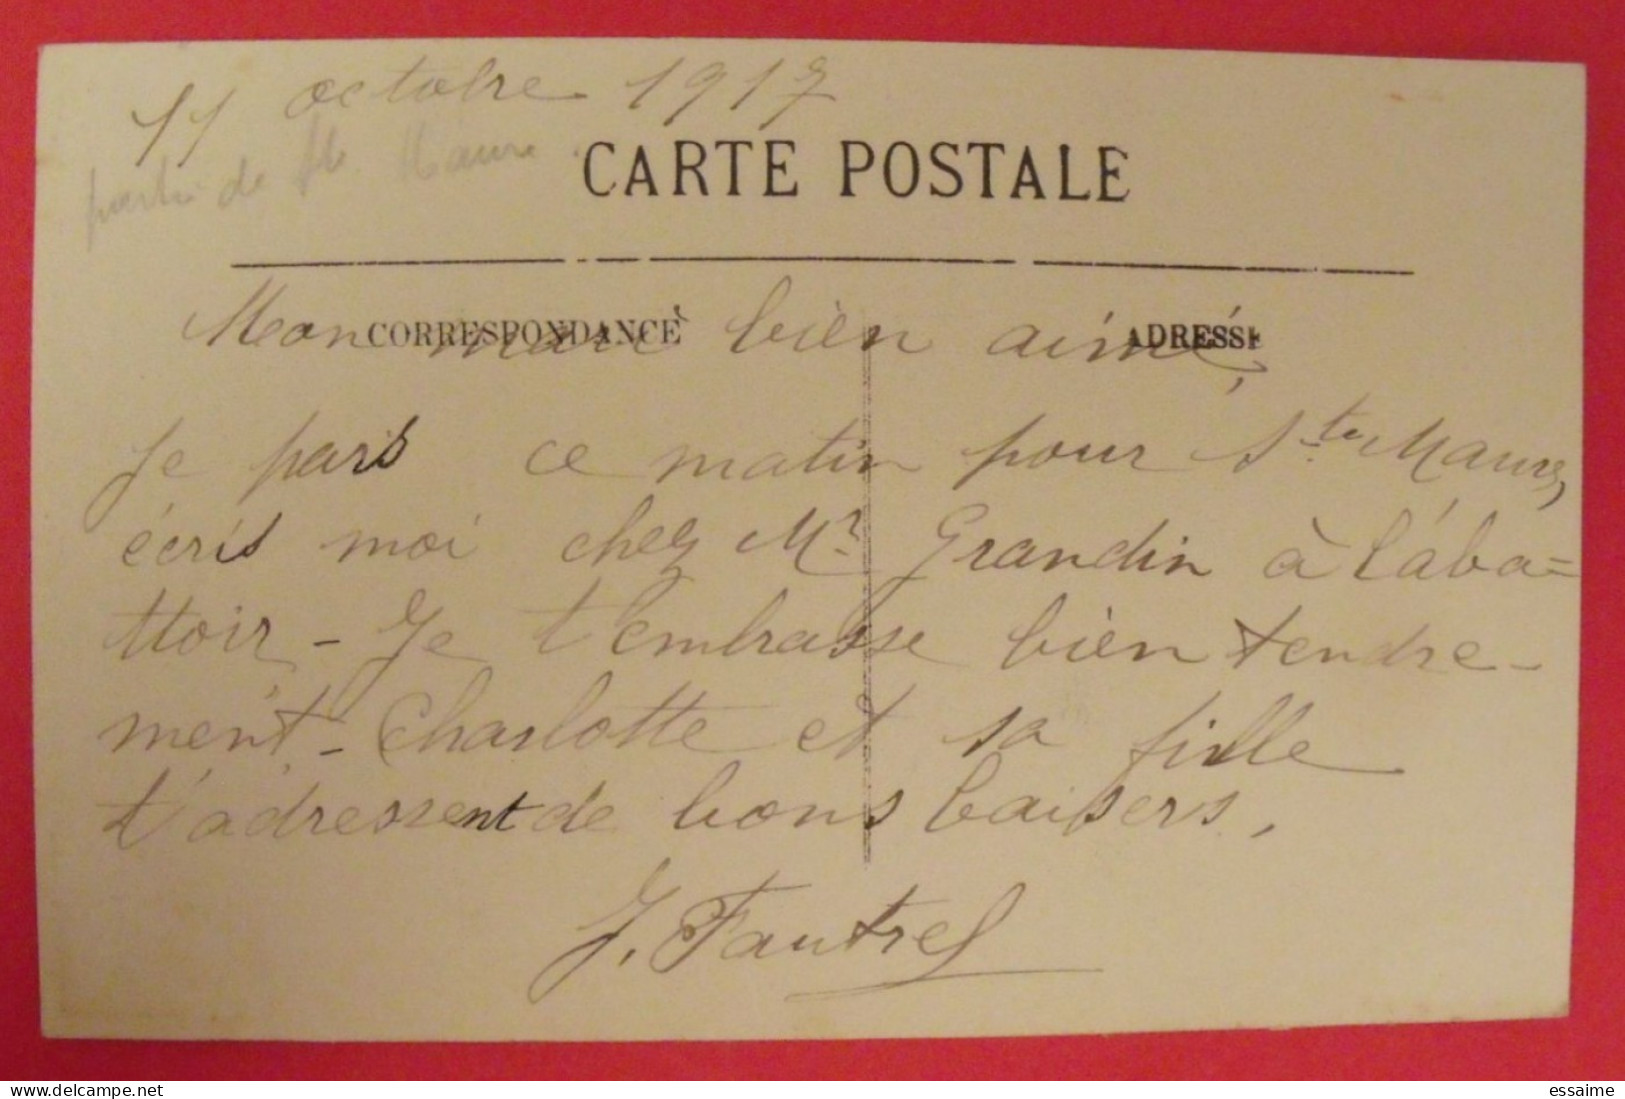 11 octobre 1917
partie de Ste Maure.
CARTE POSTALE
CORRESPONDANCE ADRESSE
Mon mari bièn aimé,
Je pars ce matin pour Ste Maure,
écris moi chez Mr Grandin à l'aba=
ttoir - Je t'embrasse bièn tendre-
ment - Charlotte et sa fille
t'adressent de bons baisers.
J. Fautrel
essaime